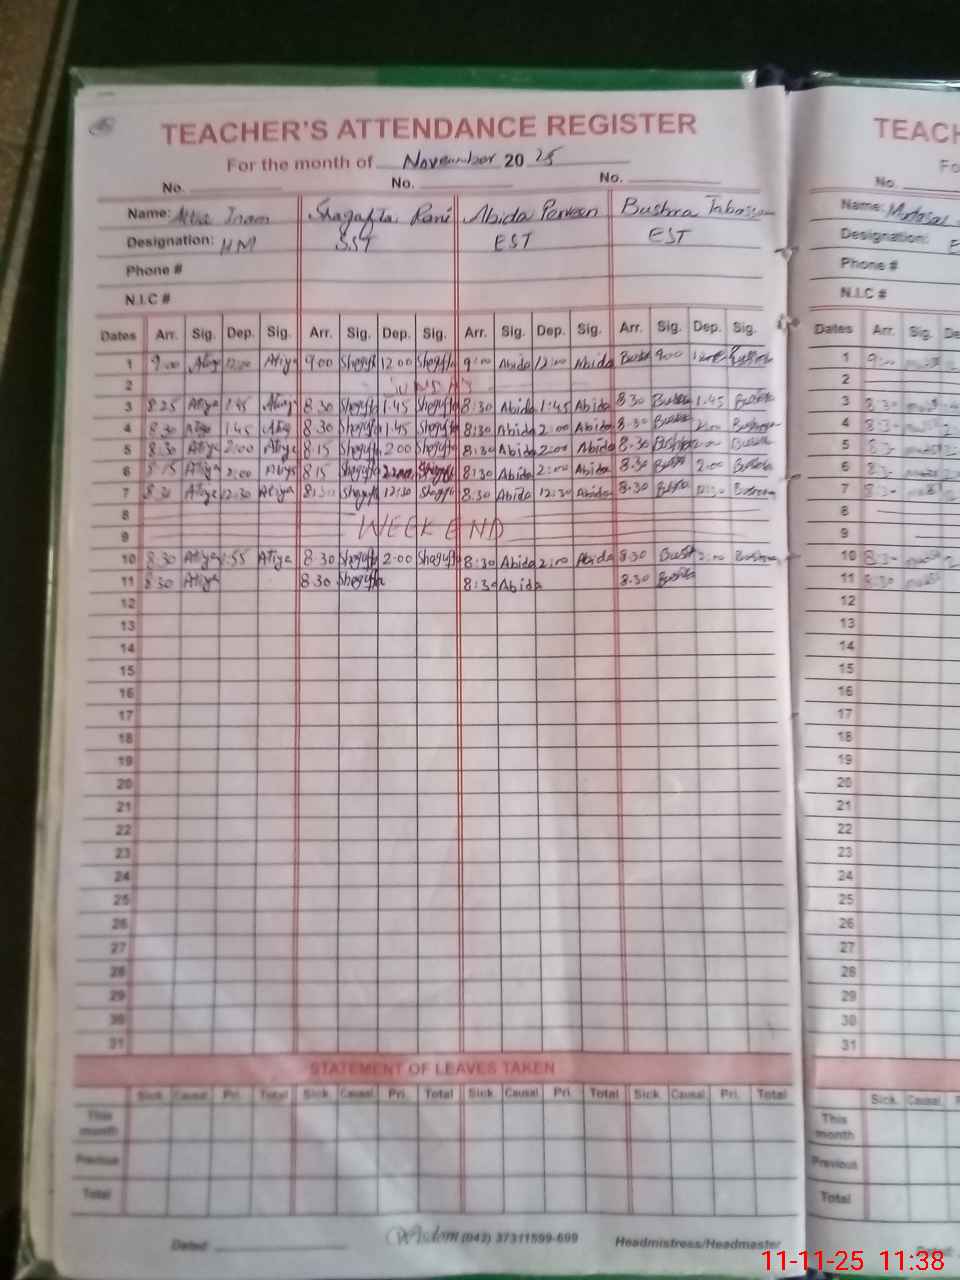 TEACHER'S ATTENDANCE REGISTER TEACH
For the month of November 20 25 Fo
No. No. No. No.
Name: Inam Shagufta Rani Abida Perveen Bushra Tabassum Name:
Designation: HM SST EST EST Designation: E
Phone # Phone #
N.I.C # N.I.C #
Dates Arr. Sig. Dep. Sig. Arr. Sig. Dep. Sig. Arr. Sig. Dep. Sig. Arr. Sig. Dep. Sig. Dates Arr. Sig. De
1 9:00 Atiya 12:00 Atiya 9:00 Shagufta 12:00 Shagufta 9:00 Abida 12:00 Abida Bushra 9:00 Bushra 1 9:00
2 SUNDAY 2
3 8:25 Atiya 1:45 Atiya 8:30 Shagufta 1:45 Shagufta 8:30 Abida 1:45 Abida 8:30 Bushra 1:45 Bushra 3 8:30
4 8:30 Atiya 1:45 Atiya 8:30 Shagufta 1:45 Shagufta 8:30 Abida 2:00 Abida 8:30 Bushra 2:00 Bushra 4 8:30
5 8:30 Atiya 2:00 Atiya 8:15 Shagufta 2:00 Shagufta 8:30 Abida 2:00 Abida 8:30 Bushra 2:00 Bushra 5 8:30
6 8:15 Atiya 2:00 Atiya 8:15 Shagufta 2:00 Shagufta 8:30 Abida 2:00 Abida 8:30 Bushra 2:00 Bushra 6 8:30
7 8:30 Atiya 12:30 Atiya 8:30 Shagufta 12:30 Shagufta 8:30 Abida 12:30 Abida 8:30 Bushra 12:30 Bushra 7 8:30
8 8
9 WEEKEND 9
10 8:30 Atiya 1:55 Atiya 8:30 Shagufta 2:00 Shagufta 8:30 Abida 2:00 Abida 8:30 Bushra 2:00 Bushra 10 8:30
11 8:30 Atiya 8:30 Shagufta 8:30 Abida 8:30 Bushra 11 8:30
12 12
13 13
14 14
15 15
16 16
17 17
18 18
19 19
20 20
21 21
22 22
23 23
24 24
25 25
26 26
27 27
28 28
29 29
30 30
31 31
STATEMENT OF LEAVES TAKEN
Sick. Causal. Pri. Total Sick. Causal. Pri. Total Sick. Causal. Pri. Total Sick. Causal. Pri. Total Sick. Causal.
This month This month
Previous Previous
Total Total
Dated: Wisdom (042) 37311599-699 Headmistress/Headmaster
11-11-25 11:38